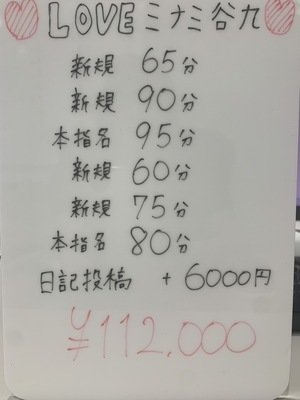 LOVE ミナミ谷九
新規 65分
新規 90分
本指名 95分
新規 60分
新規 75分
本指名 80分
日記投稿 + 6000円
¥112,000